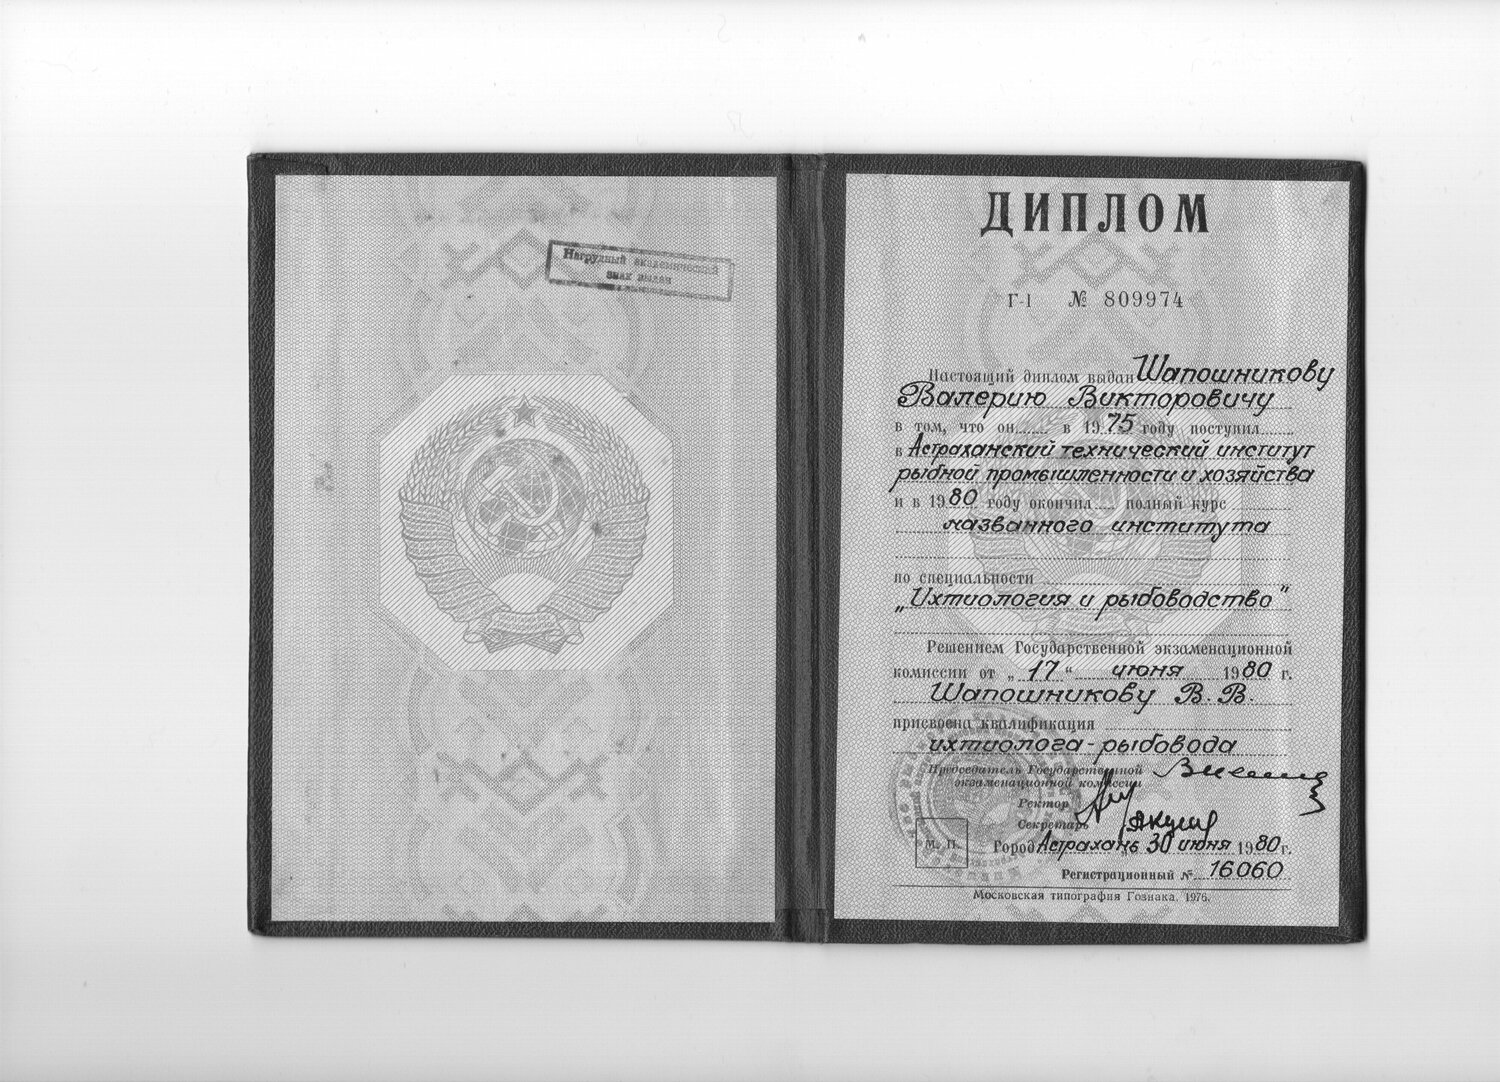 Нагрудный академический
знак выдан
ДИПЛОМ
Г-I № 809974
Настоящий диплом выдан Шапошникову
Валерию Викторовичу
в том, что он в 1975 году поступил
в Астраханский технический институт
рыбной промышленности и хозяйства
и в 1980 году окончил полный курс
названного института
по специальности
„Ихтиология и рыбоводство"
Решением Государственной экзаменационной
комиссии от „17" июня 1980 г.
Шапошникову В. В.
присвоена квалификация
ихтиолога-рыбовода
Председатель Государственной
экзаменационной комиссии
Ректор
Секретарь
М. П.
Город Астрахань 30 июня 1980 г.
Регистрационный № 16060
Московская типография Гознака. 1976.